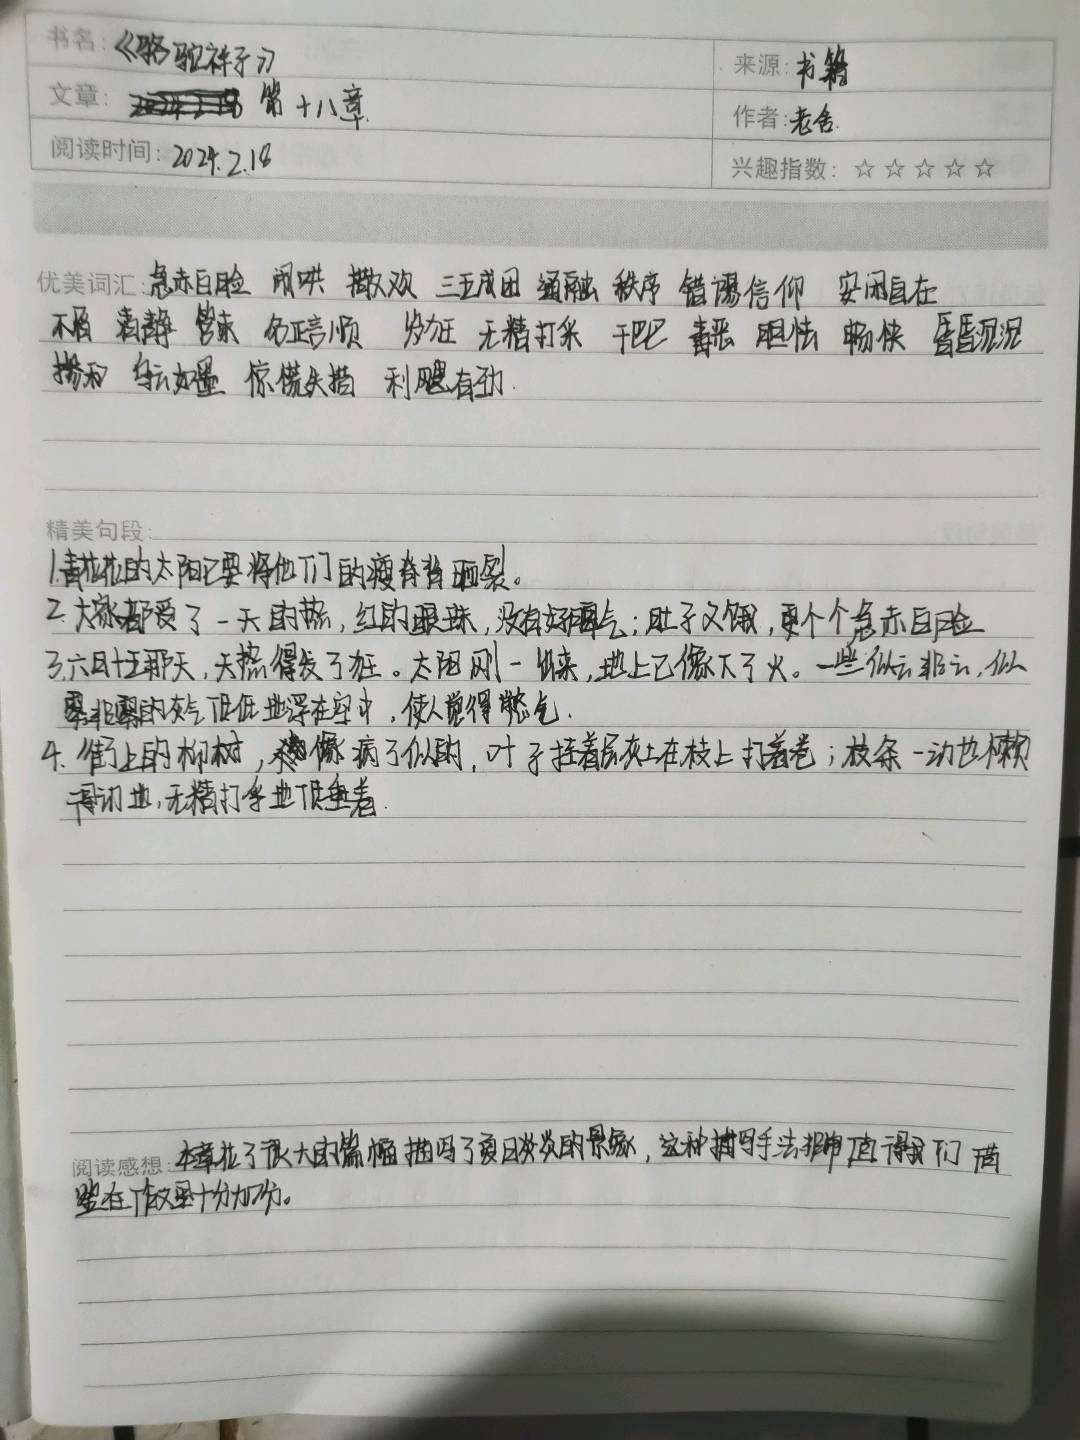 书名：《骆驼祥子》
来源：书籍
文章：第十八章
作者：老舍
阅读时间：2024.2.18
兴趣指数：☆☆☆☆☆
优美词汇：急赤白脸 闹哄 撒欢 三五成团 通融 秩序 错误信仰 安闲自在
管束 名正言顺 发狂 无精打采 干巴 毒恶 胆怯 畅快 昏昏沉沉
掺和 乌云如墨 惊慌失措 利飕有劲.
精美句段：
1.毒花花的太阳已要将他们的瘦脊背晒裂。
2.大家都受了一天的热，红着眼珠，没有好脾气；肚子又饿，更个个急赤白脸
3.六月十五那天，天热得发了狂。太阳刚一出来，地上已像下了火。一些似云非云，似
雾非雾的灰气低低地浮在空中，使人觉得憋气.
4.街上的柳树，像病了似的，叶子挂着层灰土在枝上打着卷；枝条一动也懒
得动地，无精打采地低垂着.
阅读感想：本章花了很大的篇幅描写了夏日炎炎的景象，这种描写手法非常值得我们借
鉴在作文里十分加分。